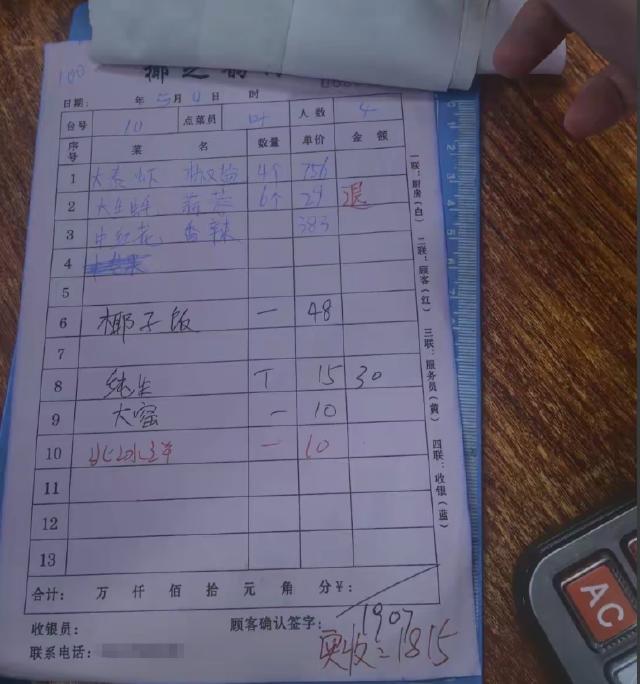 椰之韵
100
日期: 年 5月 日 时
台号 10 点菜员 叶 人数 4
序号 菜名 数量 单价 金额
1 4个 756
2 大生蚝 蒜蓉 6个 29 退
3 中红花 香辣 383
4
5
6 椰子饭 一 48
7
8 纯生 T 15 30
9 大窑 一 10
10 一 10
11
12
13
合计: 万 仟 佰 拾 元 角 分¥:
1907
收银员: 顾客确认签字:
实收:1815
联系电话:
一联:厨房(白) 二联:顾客(红) 三联:服务员(黄) 四联:收银(蓝)
AC